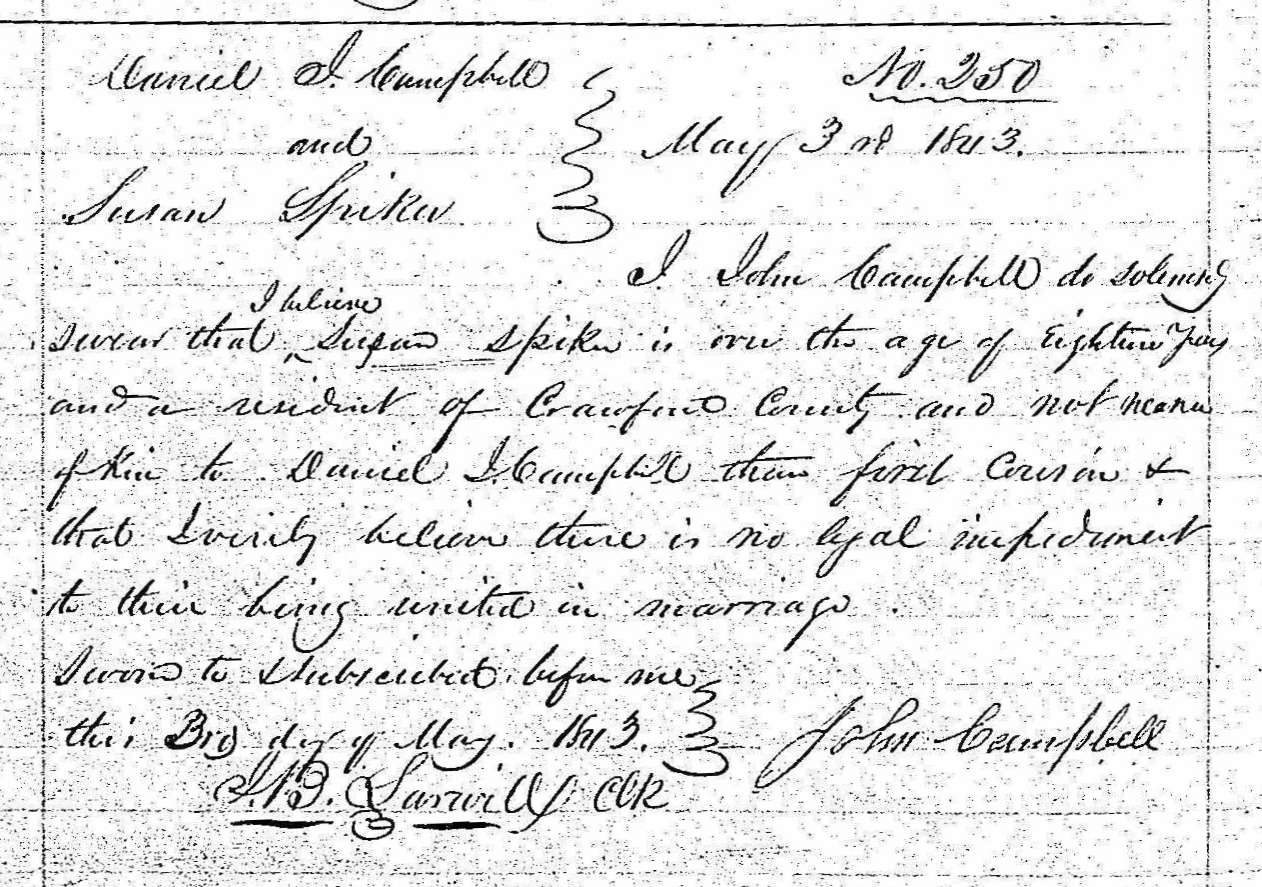 Daniel I. Campbell No. 250
and May 3rd 1843.
Susan Spiker
I John Campbell do solemnly
I believe
swear that ‸ Susan Spiker is over the age of Eighteen years
and a resident of Crawford County and not nearer
of Kin to Daniel I. Campbell than first Cousin &
that I verily believe there is no legal impediment
to their being united in marriage.
Sworn to & subscribed before me
this 3rd day of May. 1843. John Campbell
J.B. Larwill Clk